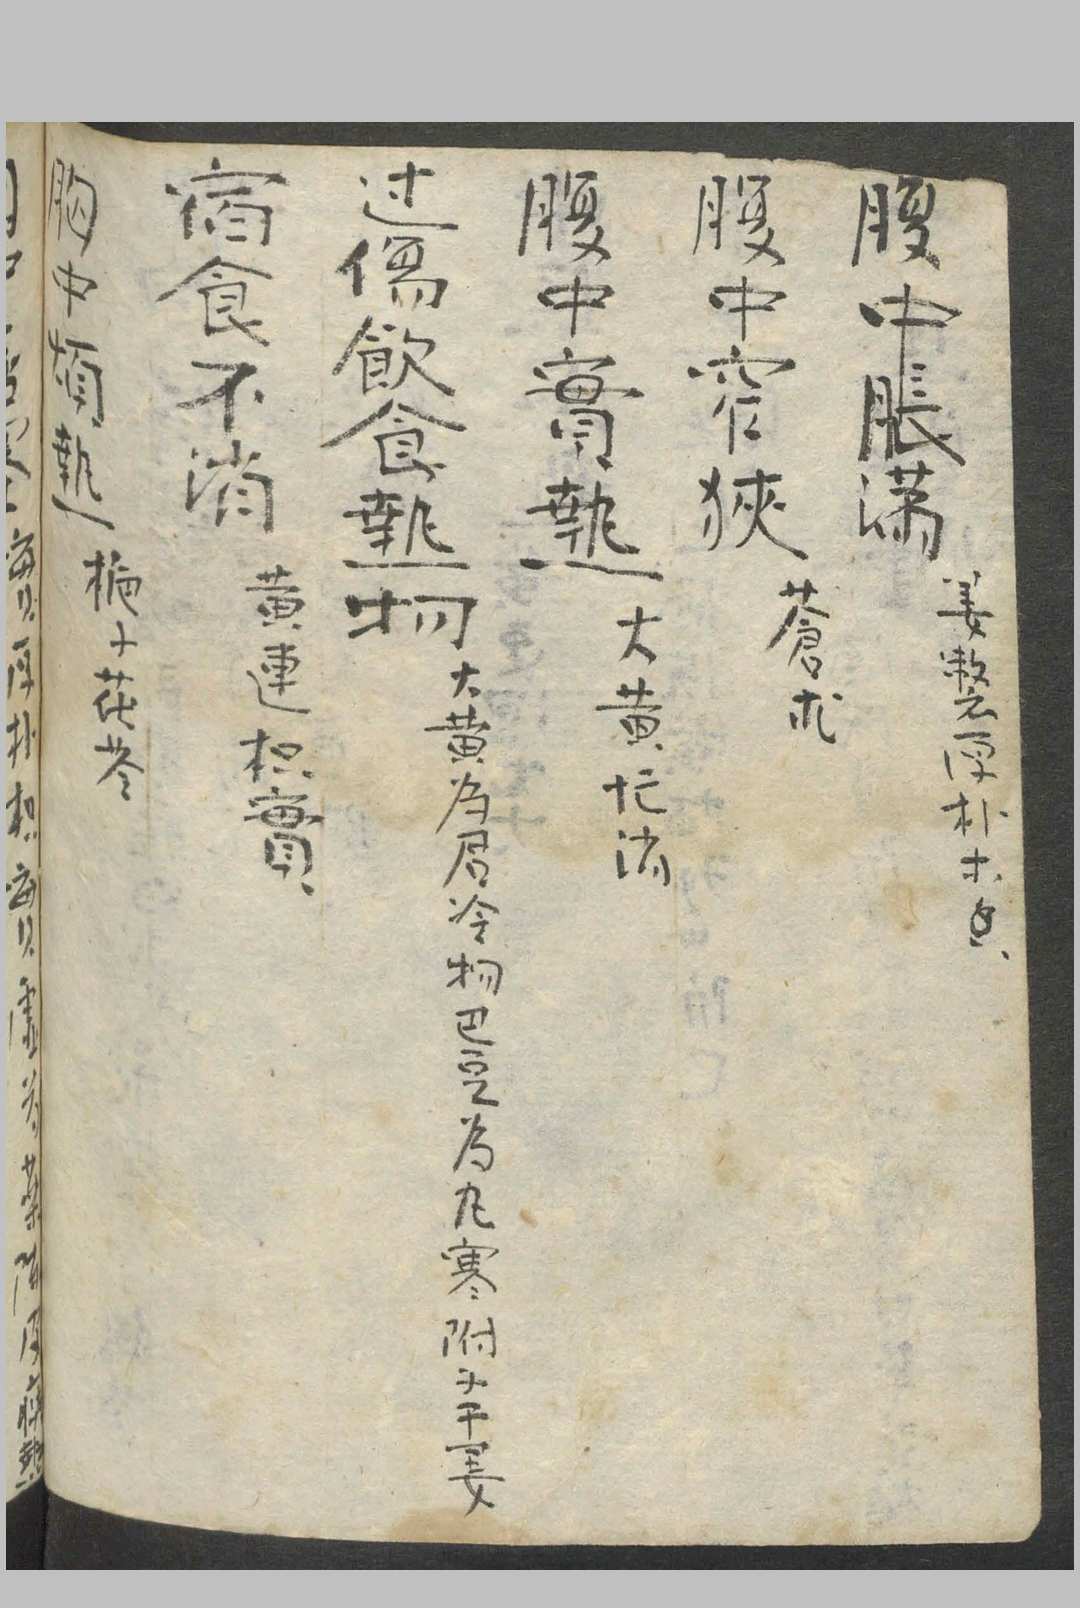 腹中脹满 姜製厚朴木香
腹中窄狹 蒼朮
腹中實熱 大黄芒消
过傷飲食熱物 大黄为君冷物巴豆为丸寒附子干姜
宿食不消 黄連枳實
胸中煩熱 梔子茯苓
實厚朴枳實虚芍薬陈皮